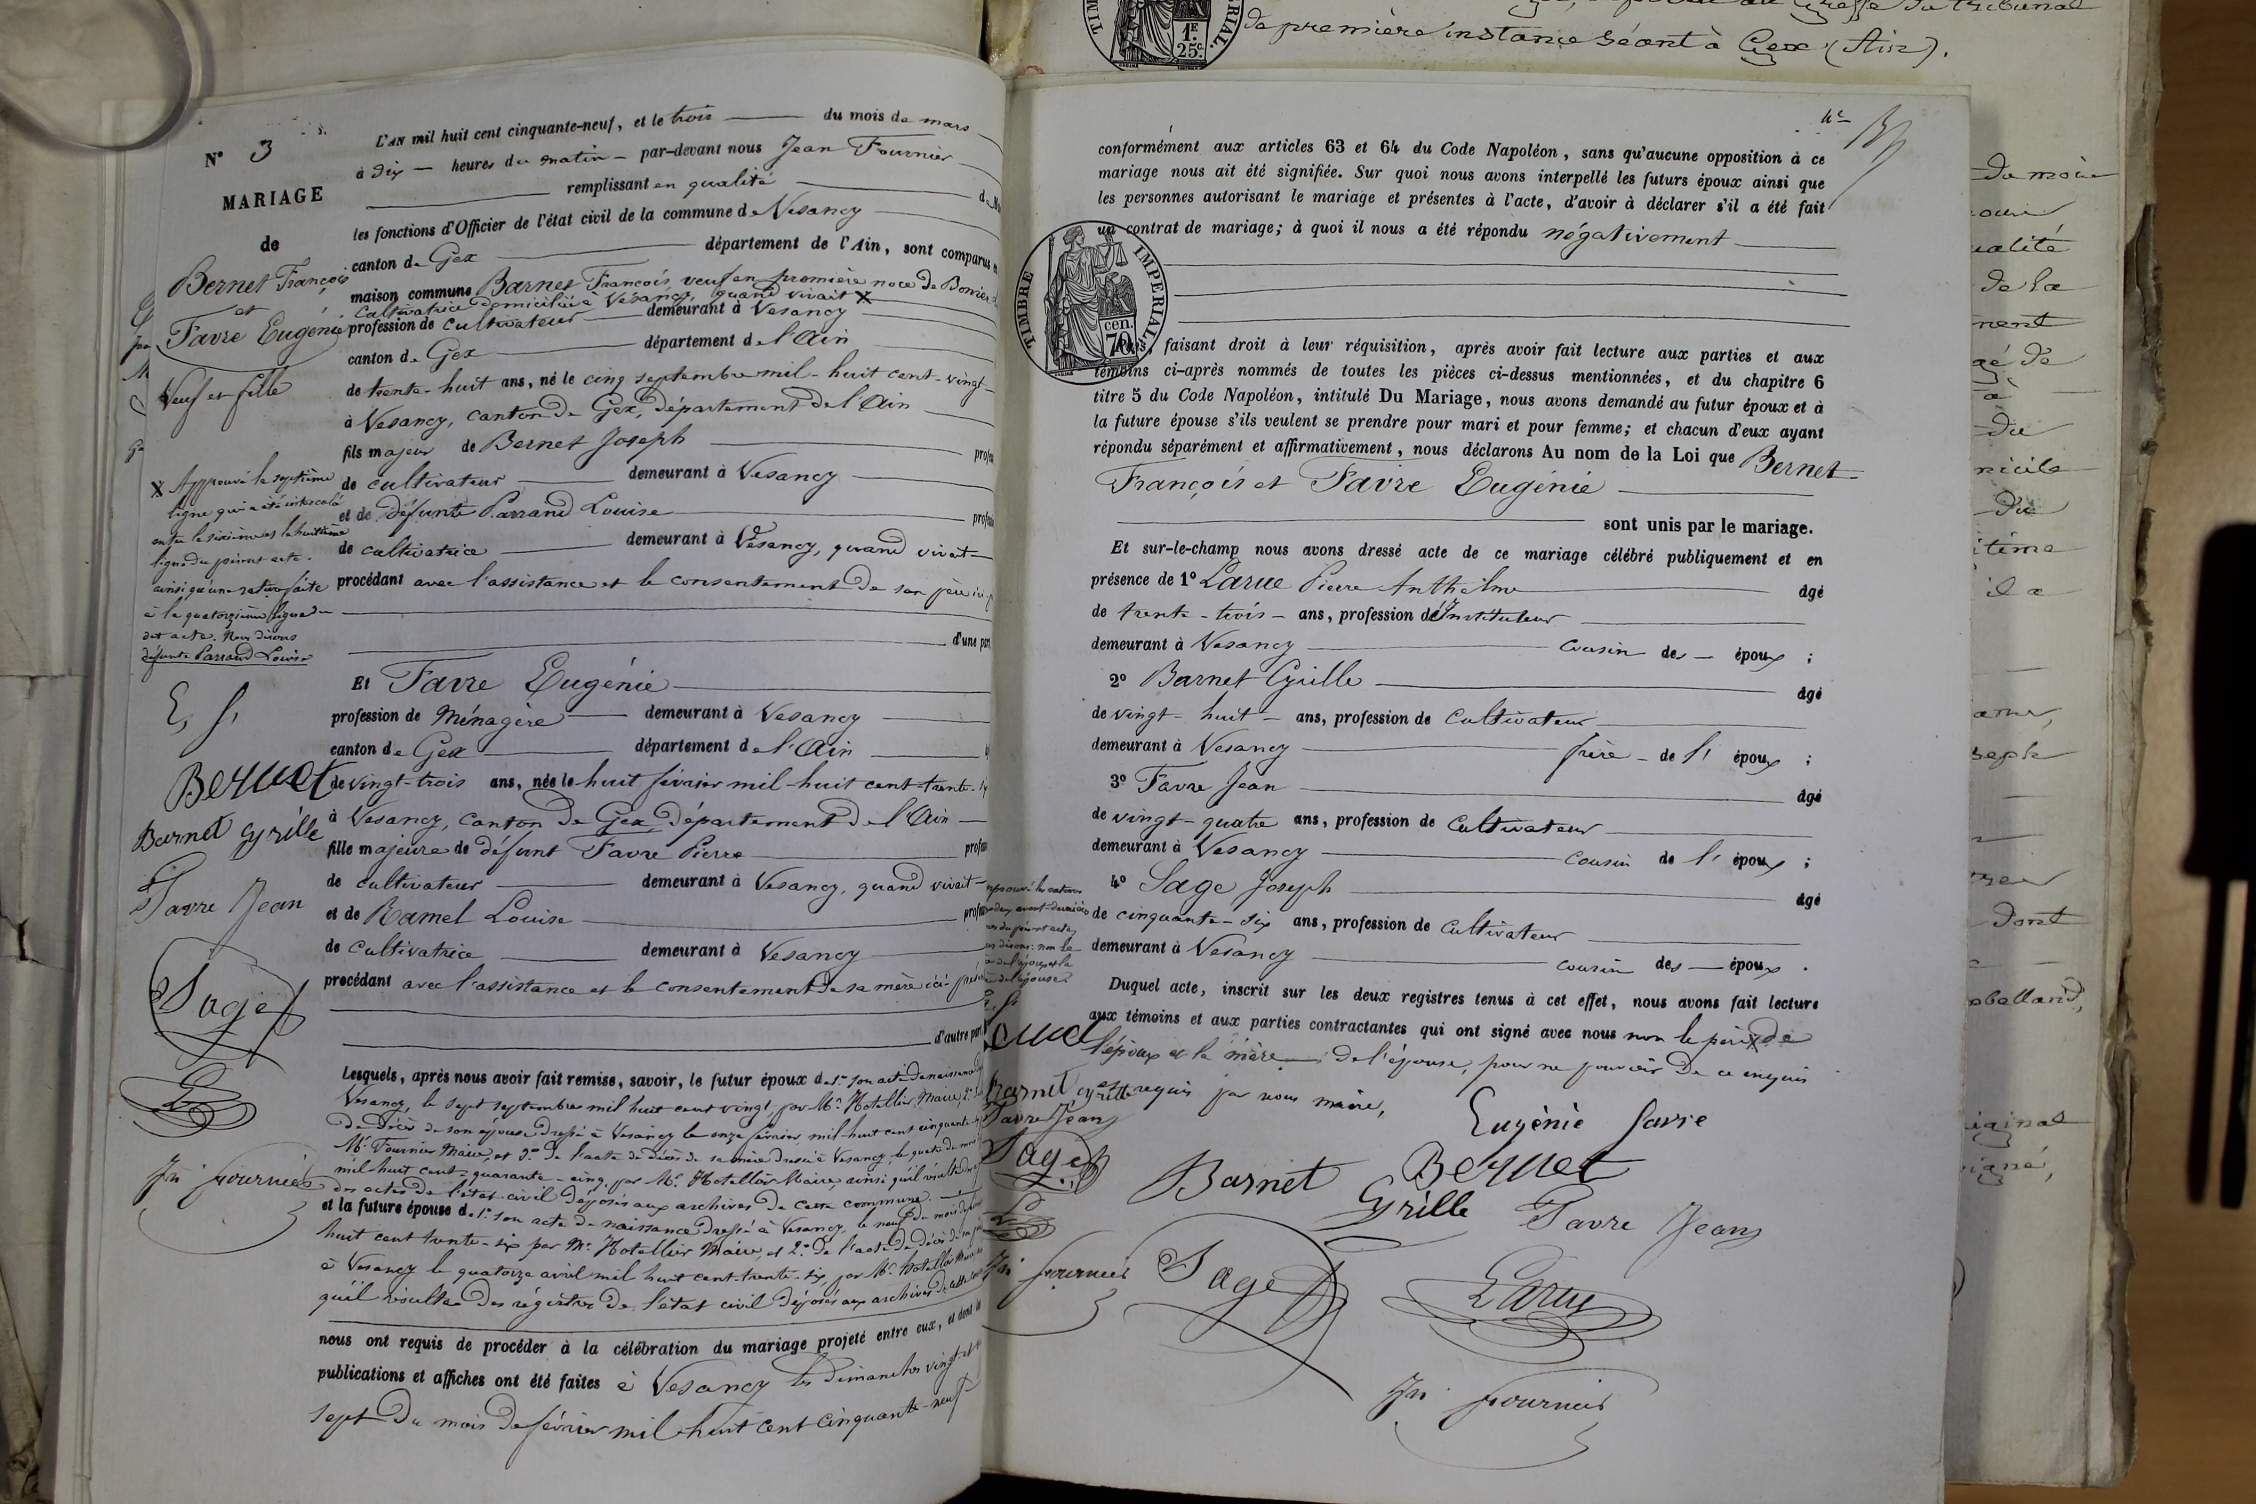 N° 3
MARIAGE
de
Bernet François
et
Favre Eugénie
Veuf et fille
X Approuvé la septième
ligne qui a été intercalé
entre la sixième et la huitième
ligne du présent acte.
ainsi qu'une rature faite
à la quatorzième ligne du
dit acte. Nous disons
défunte Parrand Louise
E, f,
Bernet
Barnet Cyrille
Favre Jean
Sage
L
Jn fournier
L'AN mil huit cent cinquante-neuf, et le trois du mois de mars
à dix heures du matin par-devant nous Jean Fournier
remplissant en qualité de
les fonctions d'Officier de l'état civil de la commune de Vesancy
canton de Gex département de l'Ain, sont comparus
maison commune Barnet François, veuf en première noce de
Cultivatrice domiciliée à Vesancy, quand vivait X
profession de cultivateur demeurant à Vesancy
canton de Gex département de l'Ain
de trente-huit ans, né le cinq septembre mil-huit cent-vingt
à Vesancy, canton de Gex, département de l'Ain
fils majeur de Bernet Joseph
de cultivateur demeurant à Vesancy
et de défunte Parrand Louise
de cultivatrice demeurant à Vesancy, quand vivait
procédant avec l'assistance et le consentement de son père
d'une part
Et Favre Eugénie
profession de Ménagère demeurant à Vesancy
canton de Gex département de l'Ain
de vingt-trois ans, née le huit février mil-huit cent-trente
à Vesancy, canton de Gex, département de l'Ain
fille majeure de défunt Favre Pierre
de cultivateur demeurant à Vesancy, quand vivait
et de Ramel Louise
de Cultivatrice demeurant à Vesancy
procédant avec l'assistance et le consentement de sa mère ici
d'autre part
Lesquels, après nous avoir fait remise, savoir, le futur époux de 1° son acte de naissance
Vesancy, le sept septembre mil huit cent vingt, par Mr. Hotellier, Maire, 2°
de décès de son épouse dressé à Vesancy le onze février mil huit cent cinquante
Mr. Fournier Maire, et 3° de l'acte de décès de sa mère dressé à Vesancy, le quatre
mil huit cent-quarante-cinq, par Mr. Hotellier Maire, ainsi qu'il résulte
des actes de l'état-civil déposés aux archives de cette commune.
et la future épouse de 1° son acte de naissance dressé à Vesancy, le neuf du mois
huit cent trente-six par Mr. Hotellier Maire, et 2° de l'acte de décès
à Vesancy le quatorze avril mil huit cent-trente-six, par Mr. Hotellier Maire
qu'il résulte des régistres de l'état civil déposés aux archives de cette
nous ont requis de procéder à la célébration du mariage projeté entre eux, et dont
publications et affiches ont été faites à Vesancy les dimanches vingt et
sept du mois de février mil-huit cent cinquante-neuf
conformément aux articles 63 et 64 du Code Napoléon, sans qu'aucune opposition à ce
mariage nous ait été signifiée. Sur quoi nous avons interpellé les futurs époux ainsi que
les personnes autorisant le mariage et présentes à l'acte, d'avoir à déclarer s'il a été fait
un contrat de mariage; à quoi il nous a été répondu négativement
TIMBRE IMPERIAL
cen. 70
faisant droit à leur réquisition, après avoir fait lecture aux parties et aux
témoins ci-après nommés de toutes les pièces ci-dessus mentionnées, et du chapitre 6
titre 5 du Code Napoléon, intitulé Du Mariage, nous avons demandé au futur époux et à
la future épouse s'ils veulent se prendre pour mari et pour femme; et chacun d'eux ayant
répondu séparément et affirmativement, nous déclarons Au nom de la Loi que Bernet
François et Favre Eugénie
sont unis par le mariage.
Et sur-le-champ nous avons dressé acte de ce mariage célébré publiquement et en
présence de 1° Larue Pierre Anthelme âgé
de trente-trois ans, profession d'Instituteur
demeurant à Vesancy cousin des époux ;
2° Barnet Cyrille âgé
de vingt-huit ans, profession de Cultivateur
demeurant à Vesancy frère de l' époux ;
3° Favre Jean âgé
de vingt-quatre ans, profession de Cultivateur
demeurant à Vesancy cousin de l' époux ;
4° Sage Joseph âgé
de cinquante-six ans, profession de Cultivateur
demeurant à Vesancy cousin des époux.
Duquel acte, inscrit sur les deux registres tenus à cet effet, nous avons fait lecture
aux témoins et aux parties contractantes qui ont signé avec nous non le père de
l'époux et la mère de l'épouse, pour ne pouvoir de ce enquis
et requis par nous maire,
Eugènie favre
Barnet
Bernet
Cyrille
Favre Jean
Sage
Larue
Jn fournier
Barnet Cyrille
Favre Jean
Sage
Jn fournier
1F. 25c.
de première instance séant à Gex (Ain).